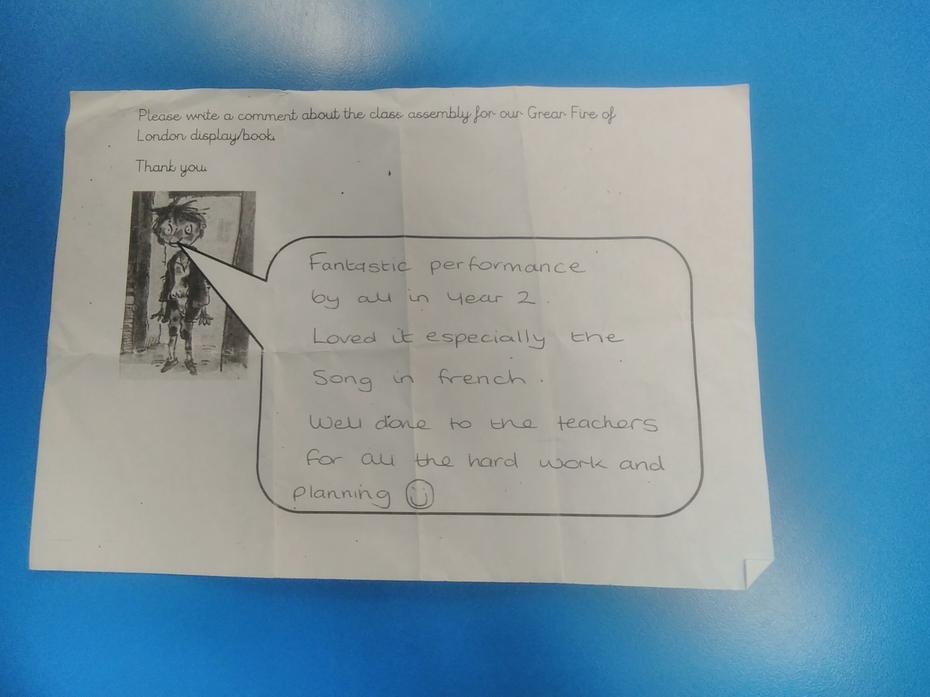 Please write a comment about the class assembly for our Grear Fire of
London display/book.
Thank you.
Fantastic performance
by all in Year 2.
Loved it especially the
Song in french.
Well done to the teachers
for all the hard work and
planning